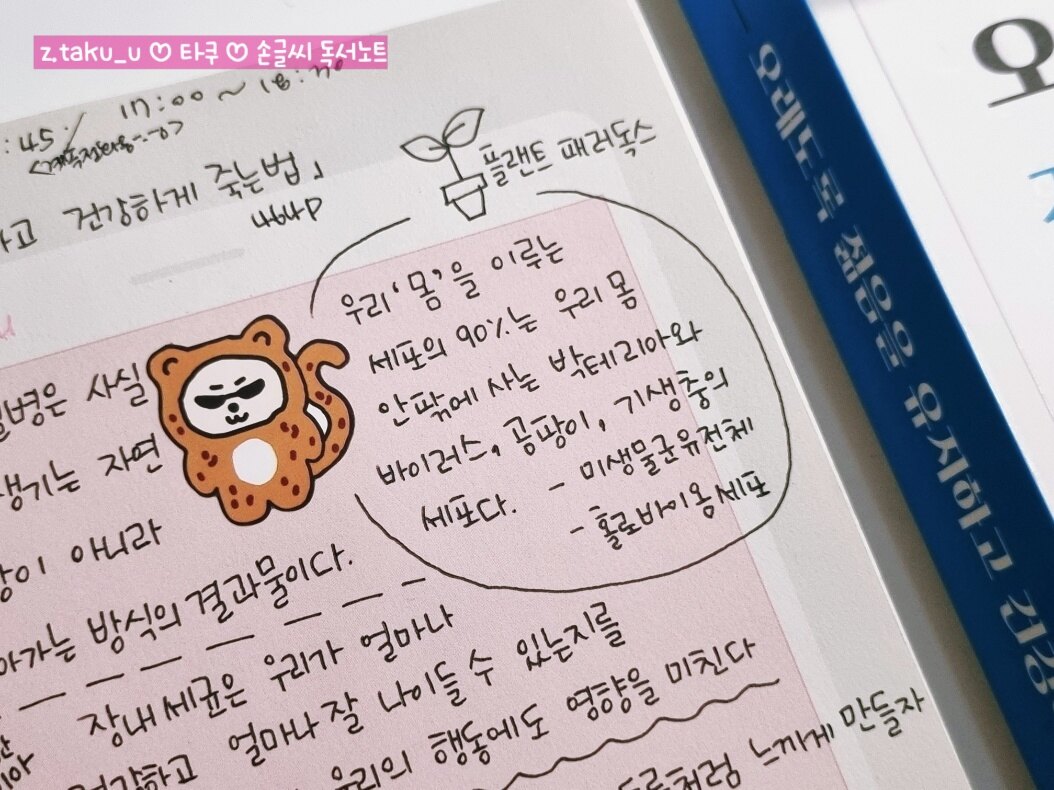 z.taku_u ♡ 타쿠 ♡ 손글씨 독서노트
:45 / 17:00 ~ 18:20
건강하게 죽는법」
464p
플랜트 패러독스
우리 '몸'을 이루는
세포의 90%는 우리 몸
안팎에 사는 박테리아와
바이러스, 곰팡이, 기생충의
세포다.
- 미생물군유전체
- 홀로바이옴세포
질병은 사실
생기는 자연
이 아니라
아가는 방식의 결과물이다.
장내세균은 우리가 얼마나
건강하고 얼마나 잘 나이들 수 있는지를
우리의 행동에도 영향을 미친다
느끼게 만들자
오래도록 젊음을 유지하고 건강
오